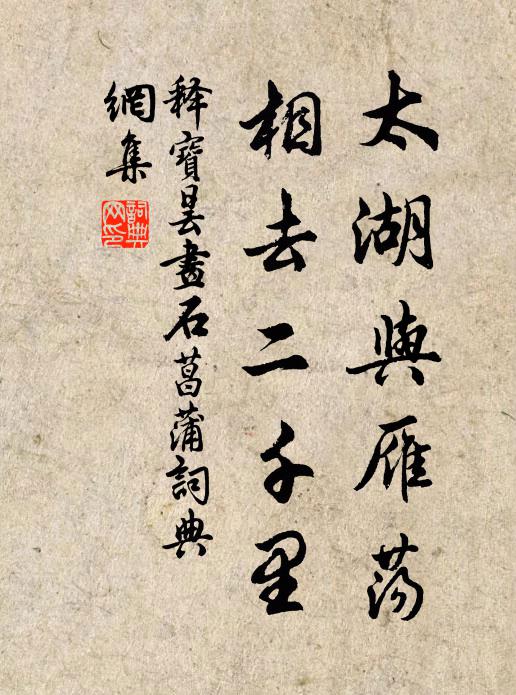 太湖與雁蕩
相去二千里
释寶曇畫石菖蒲詞典
網集
詞典
网印